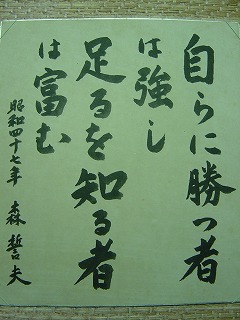 自らに勝つ者
は強し
足るを知る者
は富む
昭和四十七年 森誓夫